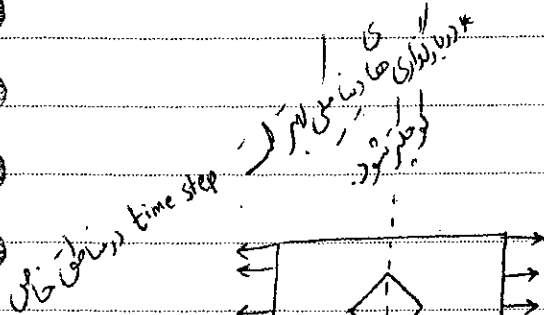 * در بارگذاری های دینامیکی بهتر است
time step در مناطق خاص
کوچکتر شود.